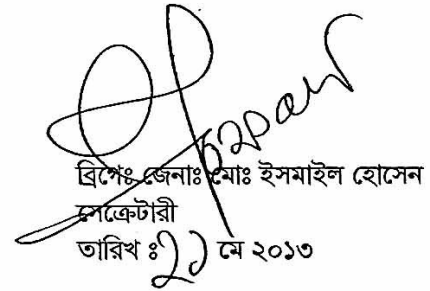 ব্রিগেঃ জেনাঃ মোঃ ইসমাইল হোসেন
সেক্রেটারী
তারিখ ঃ ২১ মে ২০১৩